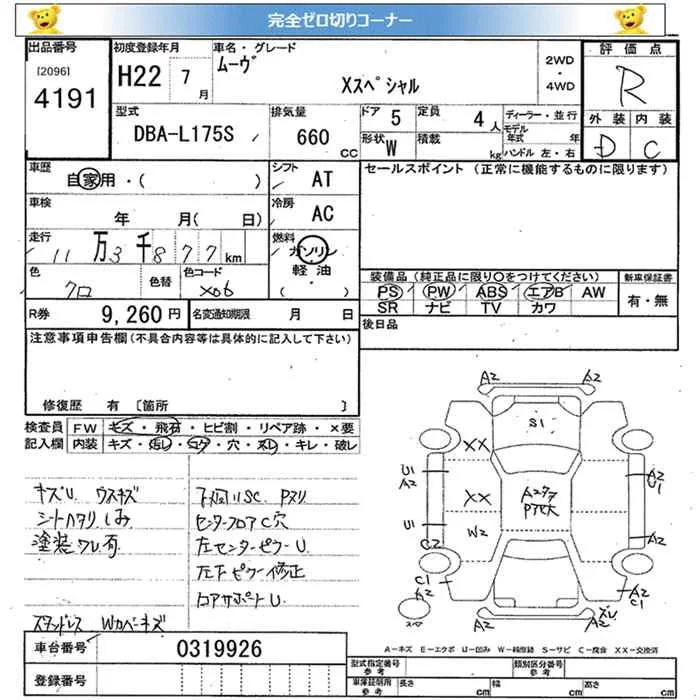 完全ゼロ切りコーナー
出品番号 初度登録年月 車名・グレード 評価点
[2096] 4191 H22 7月 ムーヴ Xスペシャル 2WD・4WD R
型式 排気量 ドア 定員 ディーラー・並行 外装 内装
DBA-L175S 660CC 5 4人 モデル年式 年 D C
形状 W 積載 kg ハンドル 左・右
車歴 自家用・( ) シフト AT セールスポイント (正常に機能するものに限ります)
車検 年 月( 日) 冷房 AC
走行 11万3千877km 燃料 ガソリン 軽油 ( )
色 クロ 色替 色コード X06
装備品 (純正品に限り○をつけてください) 新車保証書
PS PW ABS エアB AW 有・無
SR ナビ TV カワ
R券 9,260円 名変通知期限 月 日 後日品
注意事項申告欄(不具合内容等は具体的に記入して下さい)
修復歴 有 [箇所 ]
検査員記入欄 FW キズ・飛石・ヒビ割・リペア跡・×要
内装 キズ・汚レ・コゲ・穴・スレ・キレ・破レ
キズU ウスキズ
シートヘタリ しみ
塗装ワレ有
センターフロアC穴
左センターピラーU
左下ピラー修正
コアサポートU
A2 A2
S1
XX
U1 A2 XX A2 U1
U1 W2
C2 A2
C1 A2 A2 C1
A2 A2 ズレ
A-キズ E-エクボ U-凹み W-補修跡 S-サビ C-腐食 XX-交換済
車台番号 0319926
登録番号
型式指定番号 参考 類別区分番号 参考
車庫証明用 参考 長さ cm 幅 cm 高さ cm